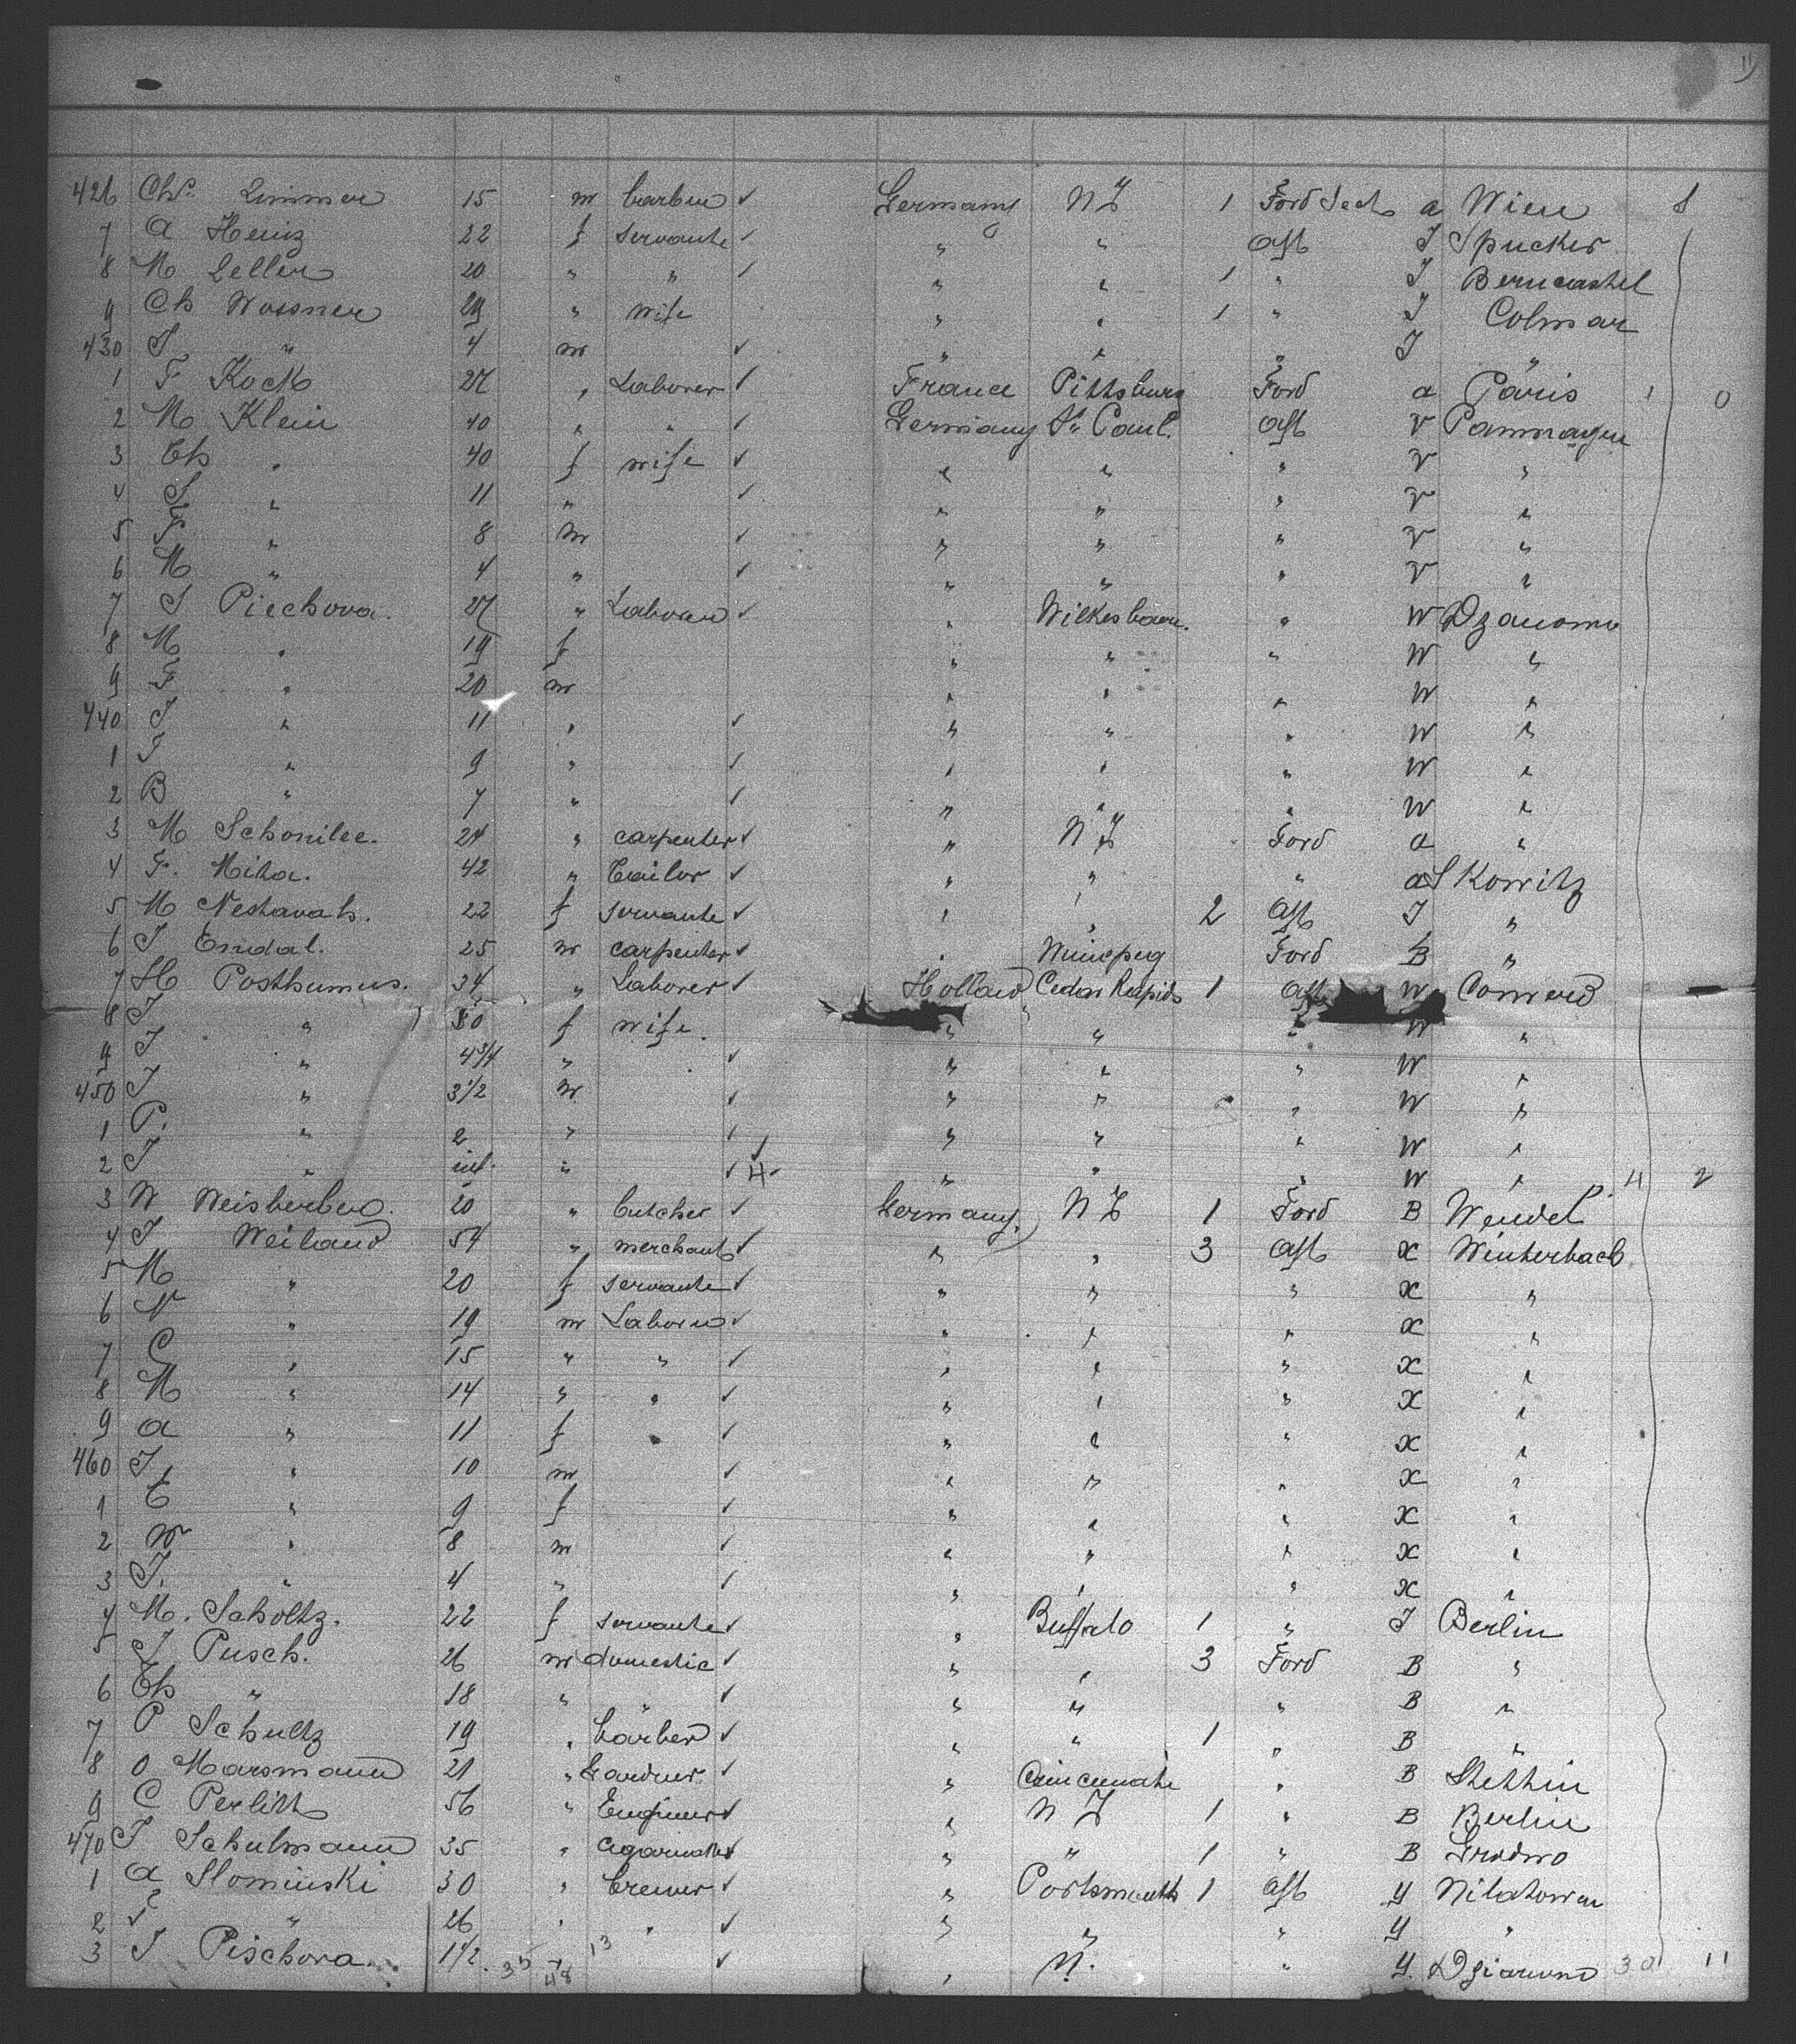 426 Chs. Limmer 15 m barber ✓ Germany N Y 1 Ford Deck a Wien
7 A Heinz 22 f servante ✓ " " Aft J Spucker
8 M Zeller 20 " " ✓ " " 1 " J Berncastel
9 Ch Wossner 29 " wife " " 1 " J Colmar
430 S " 4 m ✓ " " " J "
1 F Kock 27 " Laborer ✓ France Pittsburg Ford a Paris 1 0
2 M Klein 40 " " ✓ Germany St. Paul. Aft V
3 Th " 40 f wife ✓ " " " V "
4 S " 11 " ✓ " " " V "
5 F " 8 m ✓ " " " V "
6 M " 4 " ✓ " " " V "
7 S Piechova. 27 " Laborer ✓ " Wilkesbarre. " W
8 M " 19 f " " " W "
9 F " 20 m " " " W "
440 J " 11 " ✓ " " " W "
1 T " 9 " ✓ " " " W "
2 B " 7 " ✓ " " " W "
3 M Schonilee. 24 " carpenter ✓ " N Y Ford a "
4 F. Miha. 42 " Tailor ✓ " " " a Skowitz
5 M Nestavah. 22 f servante ✓ " " 2 Aft J "
6 J Emdal. 25 m carpenter ✓ " Winepeg Ford B "
7 H Posthumus. 34 " Laborer ✓ Holland Cedar Rapids 1 Aft W
8 J " 30 f wife. " " " W "
9 J " 4 3/4 " ✓ " " " W "
450 J " 3 1/2 m ✓ " " " W "
1 P. " 2 " ✓ " " " W "
2 J " inf. " ✓ 4 " " " W " 4 2
3 W Weisberberg. 20 " butcher ✓ Germany. N Y 1 Ford B Wendel
4 J Weiland 54 " merchant ✓ " " 3 Aft X Winterbach
5 M " 20 f servante ✓ " " " X "
6 N " 19 m Laborer ✓ " " " X "
7 C " 15 " " ✓ " " " X "
8 M " 14 " " ✓ " " " X "
9 A " 11 f ✓ " " " X "
460 J " 10 m ✓ " " " X "
1 E " 9 f ✓ " " " X "
2 W " 8 m ✓ " " " X "
3 J. " 4 " ✓ " " " X "
4 M. Scholtz. 22 f servante ✓ " Buffalo 1 " J Berlin
5 J Pusch. 26 m domestic ✓ " " 3 Ford B "
6 Th " 18 " " ✓ " " " B "
7 P Schultz 19 " barber ✓ " " 1 " B "
8 O Marsmann 21 " Gardner ✓ " Cincinnati " B Stettin
9 C Perlith 56 " Engineer ✓ " N Y 1 " B Berlin
470 J Schulmann 35 " ✓ " " 1 " B Grodno
1 A Slominski 30 " brewer ✓ " Portsmouth 1 Aft Y
2 " 26 " " ✓ " " " Y "
3 J Pischova 1 1/2. 35 48 13 ✓ " N. " Y. 30 11